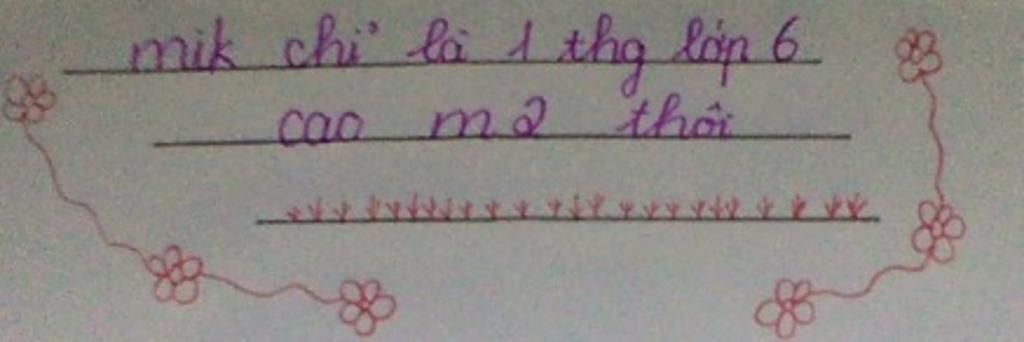 mik chỉ là 1 thg lớp 6
cao m2 thôi